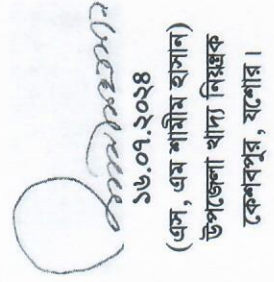 ১৬.০৭.২০২৪
(এস, এম শামীম হাসান)
উপজেলা খাদ্য নিয়ন্ত্রক
কেশবপুর, যশোর।